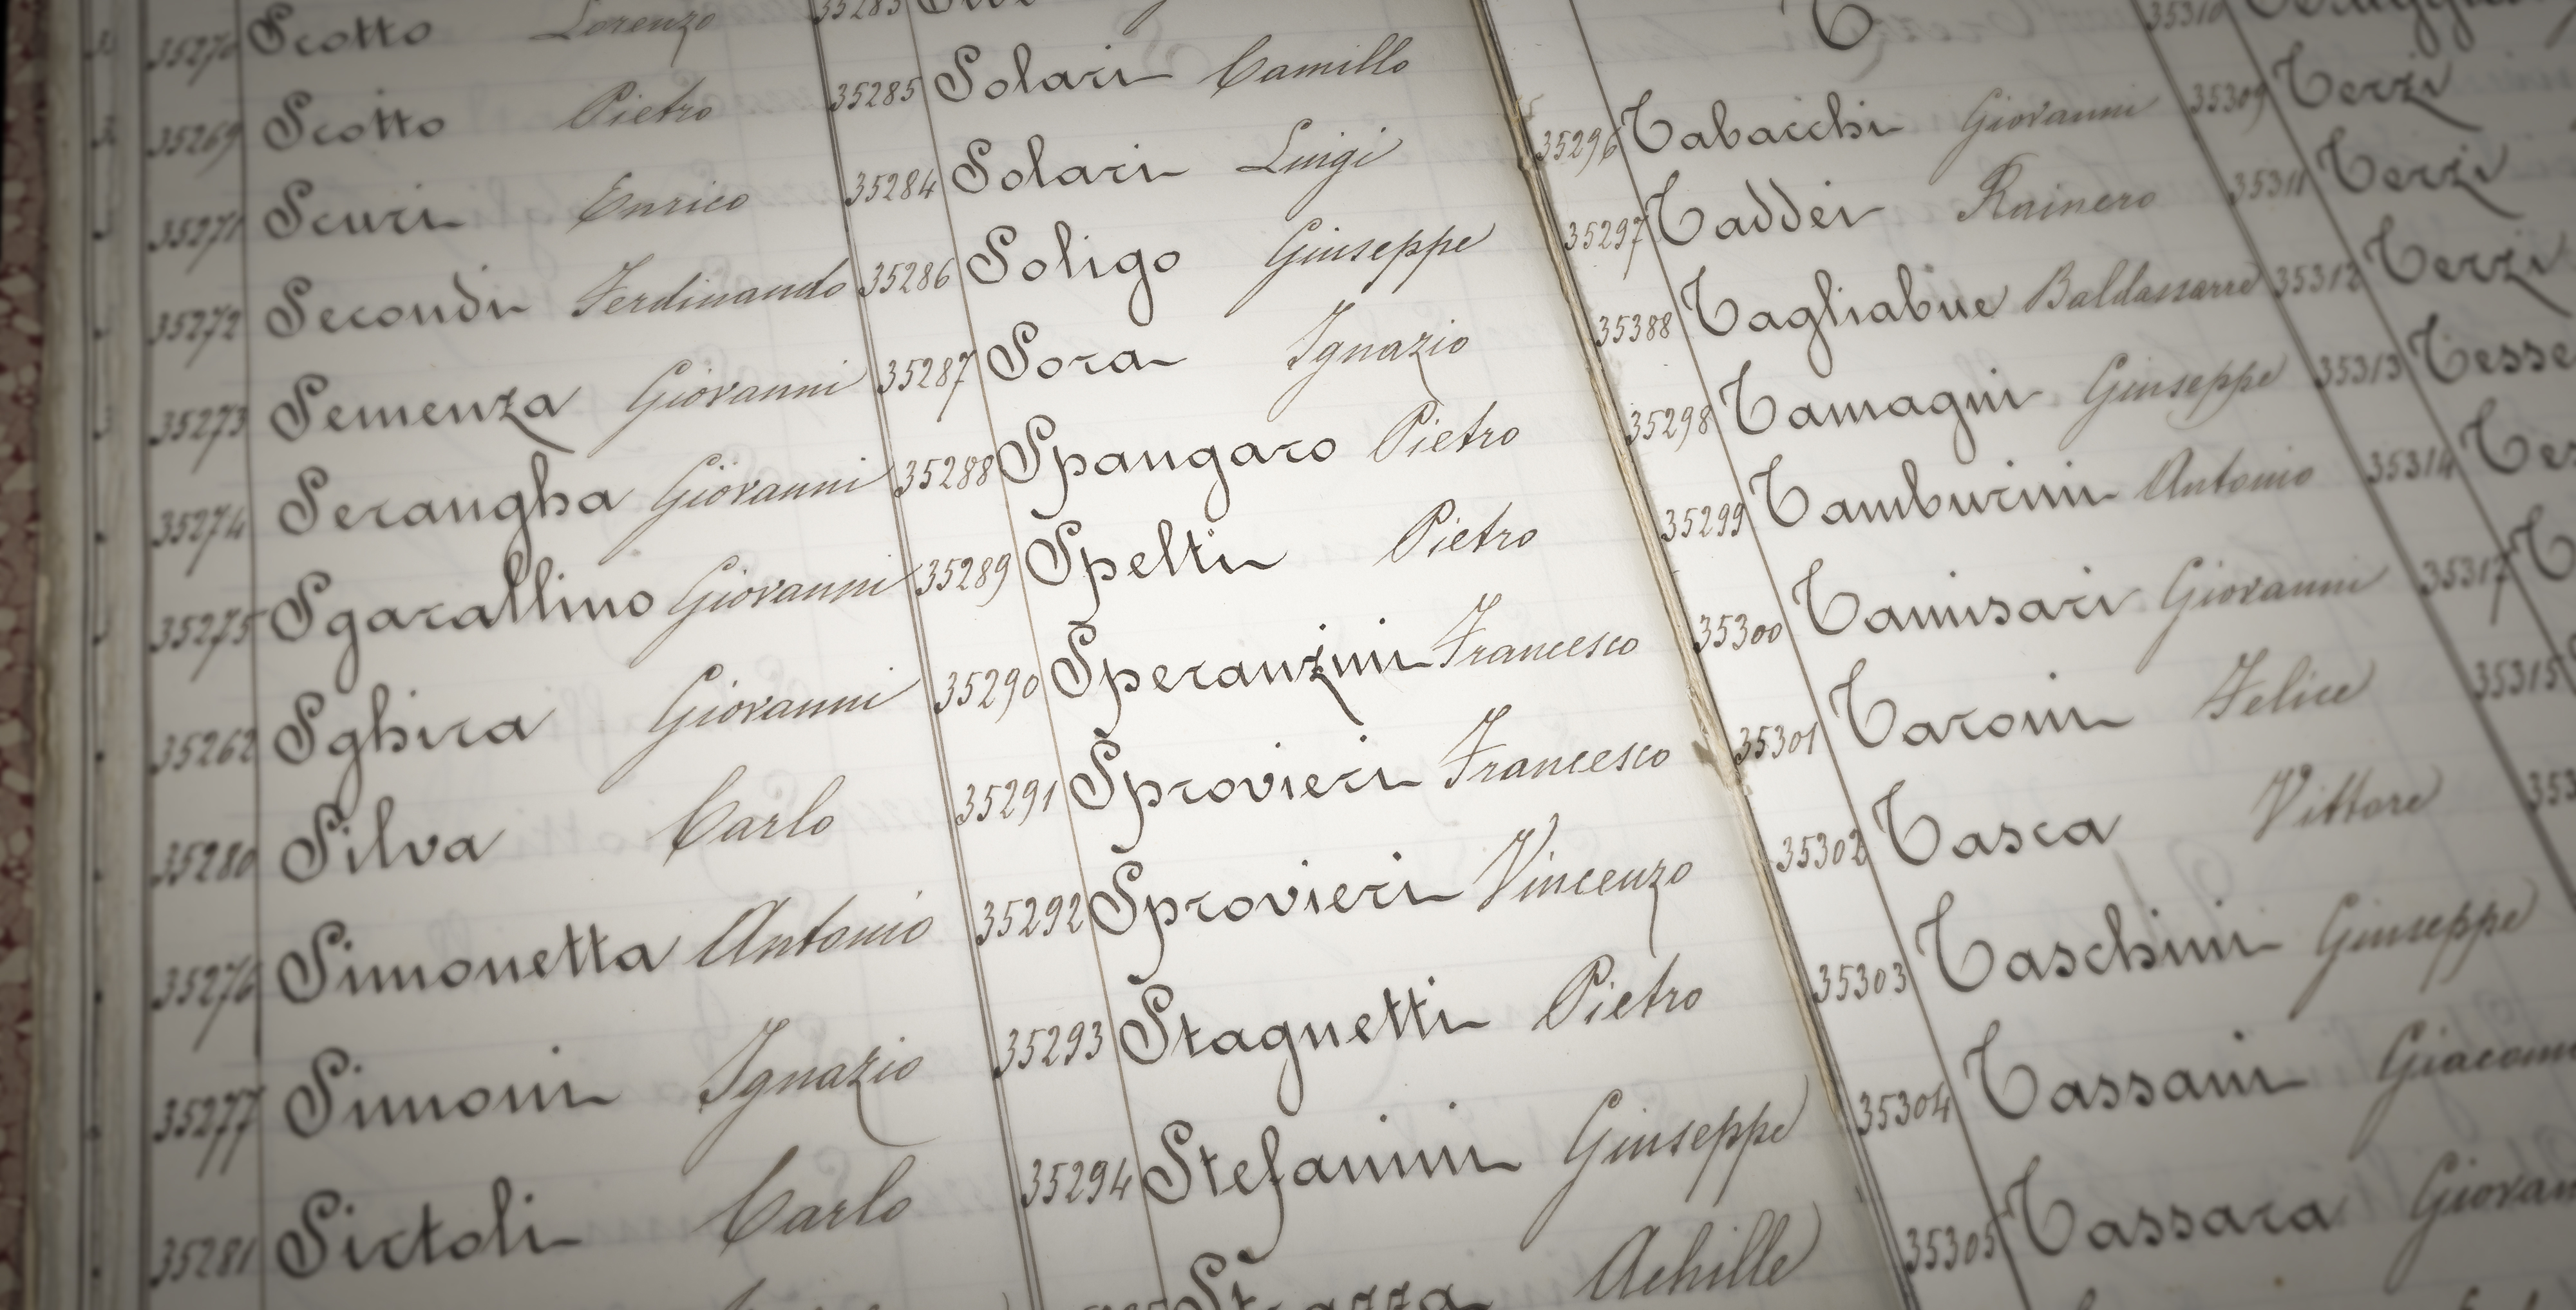 35270 Scotto Lorenzo
35269 Scotto Pietro
35271 Scuri Enrico
35272 Secondi Ferdinando
35273 Semenza Giovanni
35274 Serangha Giovanni
35275 Sgarallino Giovanni
35262 Sghira Giovanni
35280 Silva Carlo
35276 Simonetta Antonio
35277 Simoni Ignazio
35281 Sirtoli Carlo
35283
35285 Solari Camillo
35284 Solari Luigi
35286 Soligo Giuseppe
35287 Sora Ignazio
35288 Spangaro Pietro
35289 Spelti Pietro
35290 Speranzini Francesco
35291 Sprovieri Francesco
35292 Sprovieri Vincenzo
35293 Stagnetti Pietro
35294 Stefanini Giuseppe
Strazza Achille
T
35296 Tabacchi Giovanni
35297 Taddei Rainero
35388 Tagliabue Baldassarre
35298 Tamagni Giuseppe
35299 Tamburini Antonio
35300 Tamisari Giovanni
35301 Taroni Felice
35302 Tasca Vittore
35303 Taschini Giuseppe
35304 Tassani Giacomo
35305 Tassara Giovan
35310
35309 Terzi
35311 Terzi
35312 Terzi
35313 Tesse
35314 Tes
35317 T
35315
353